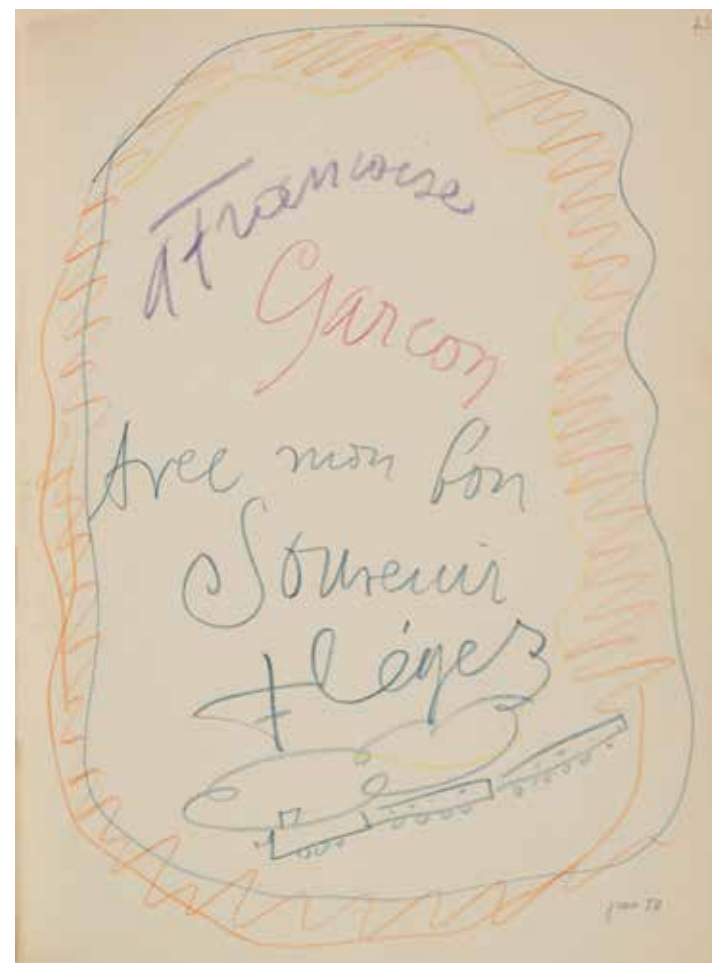 A Francoise
Garcon
Avec mon bon
Souvenir
F Léger